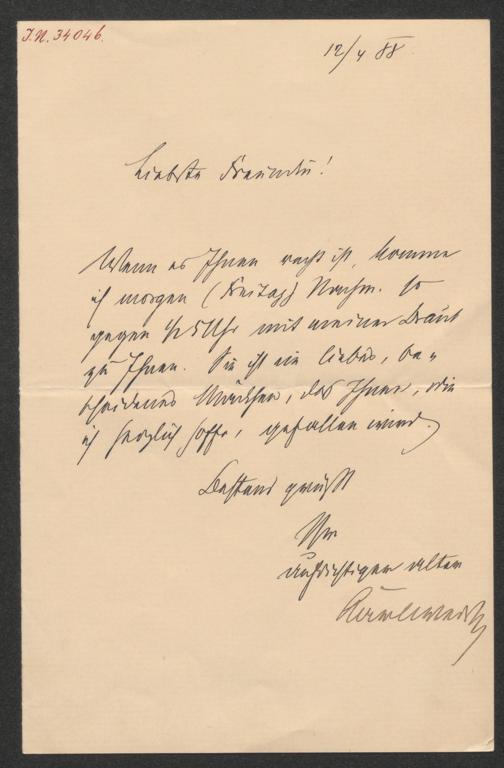 I.N. 34046.
12/4 88
Liebste Freundin!
Wenn es Ihnen recht ist, komme
ich morgen (Freitag) Nachm. so
gegen 1/2 5 Uhr mit meiner Braut
zu Ihnen. Sie ist ein liebes, be-
scheidenes Mädchen, das Ihnen, wie
ich herzlich hoffe, gefallen wird.
Bestens grüßt
Ihr
aufrichtiger alter